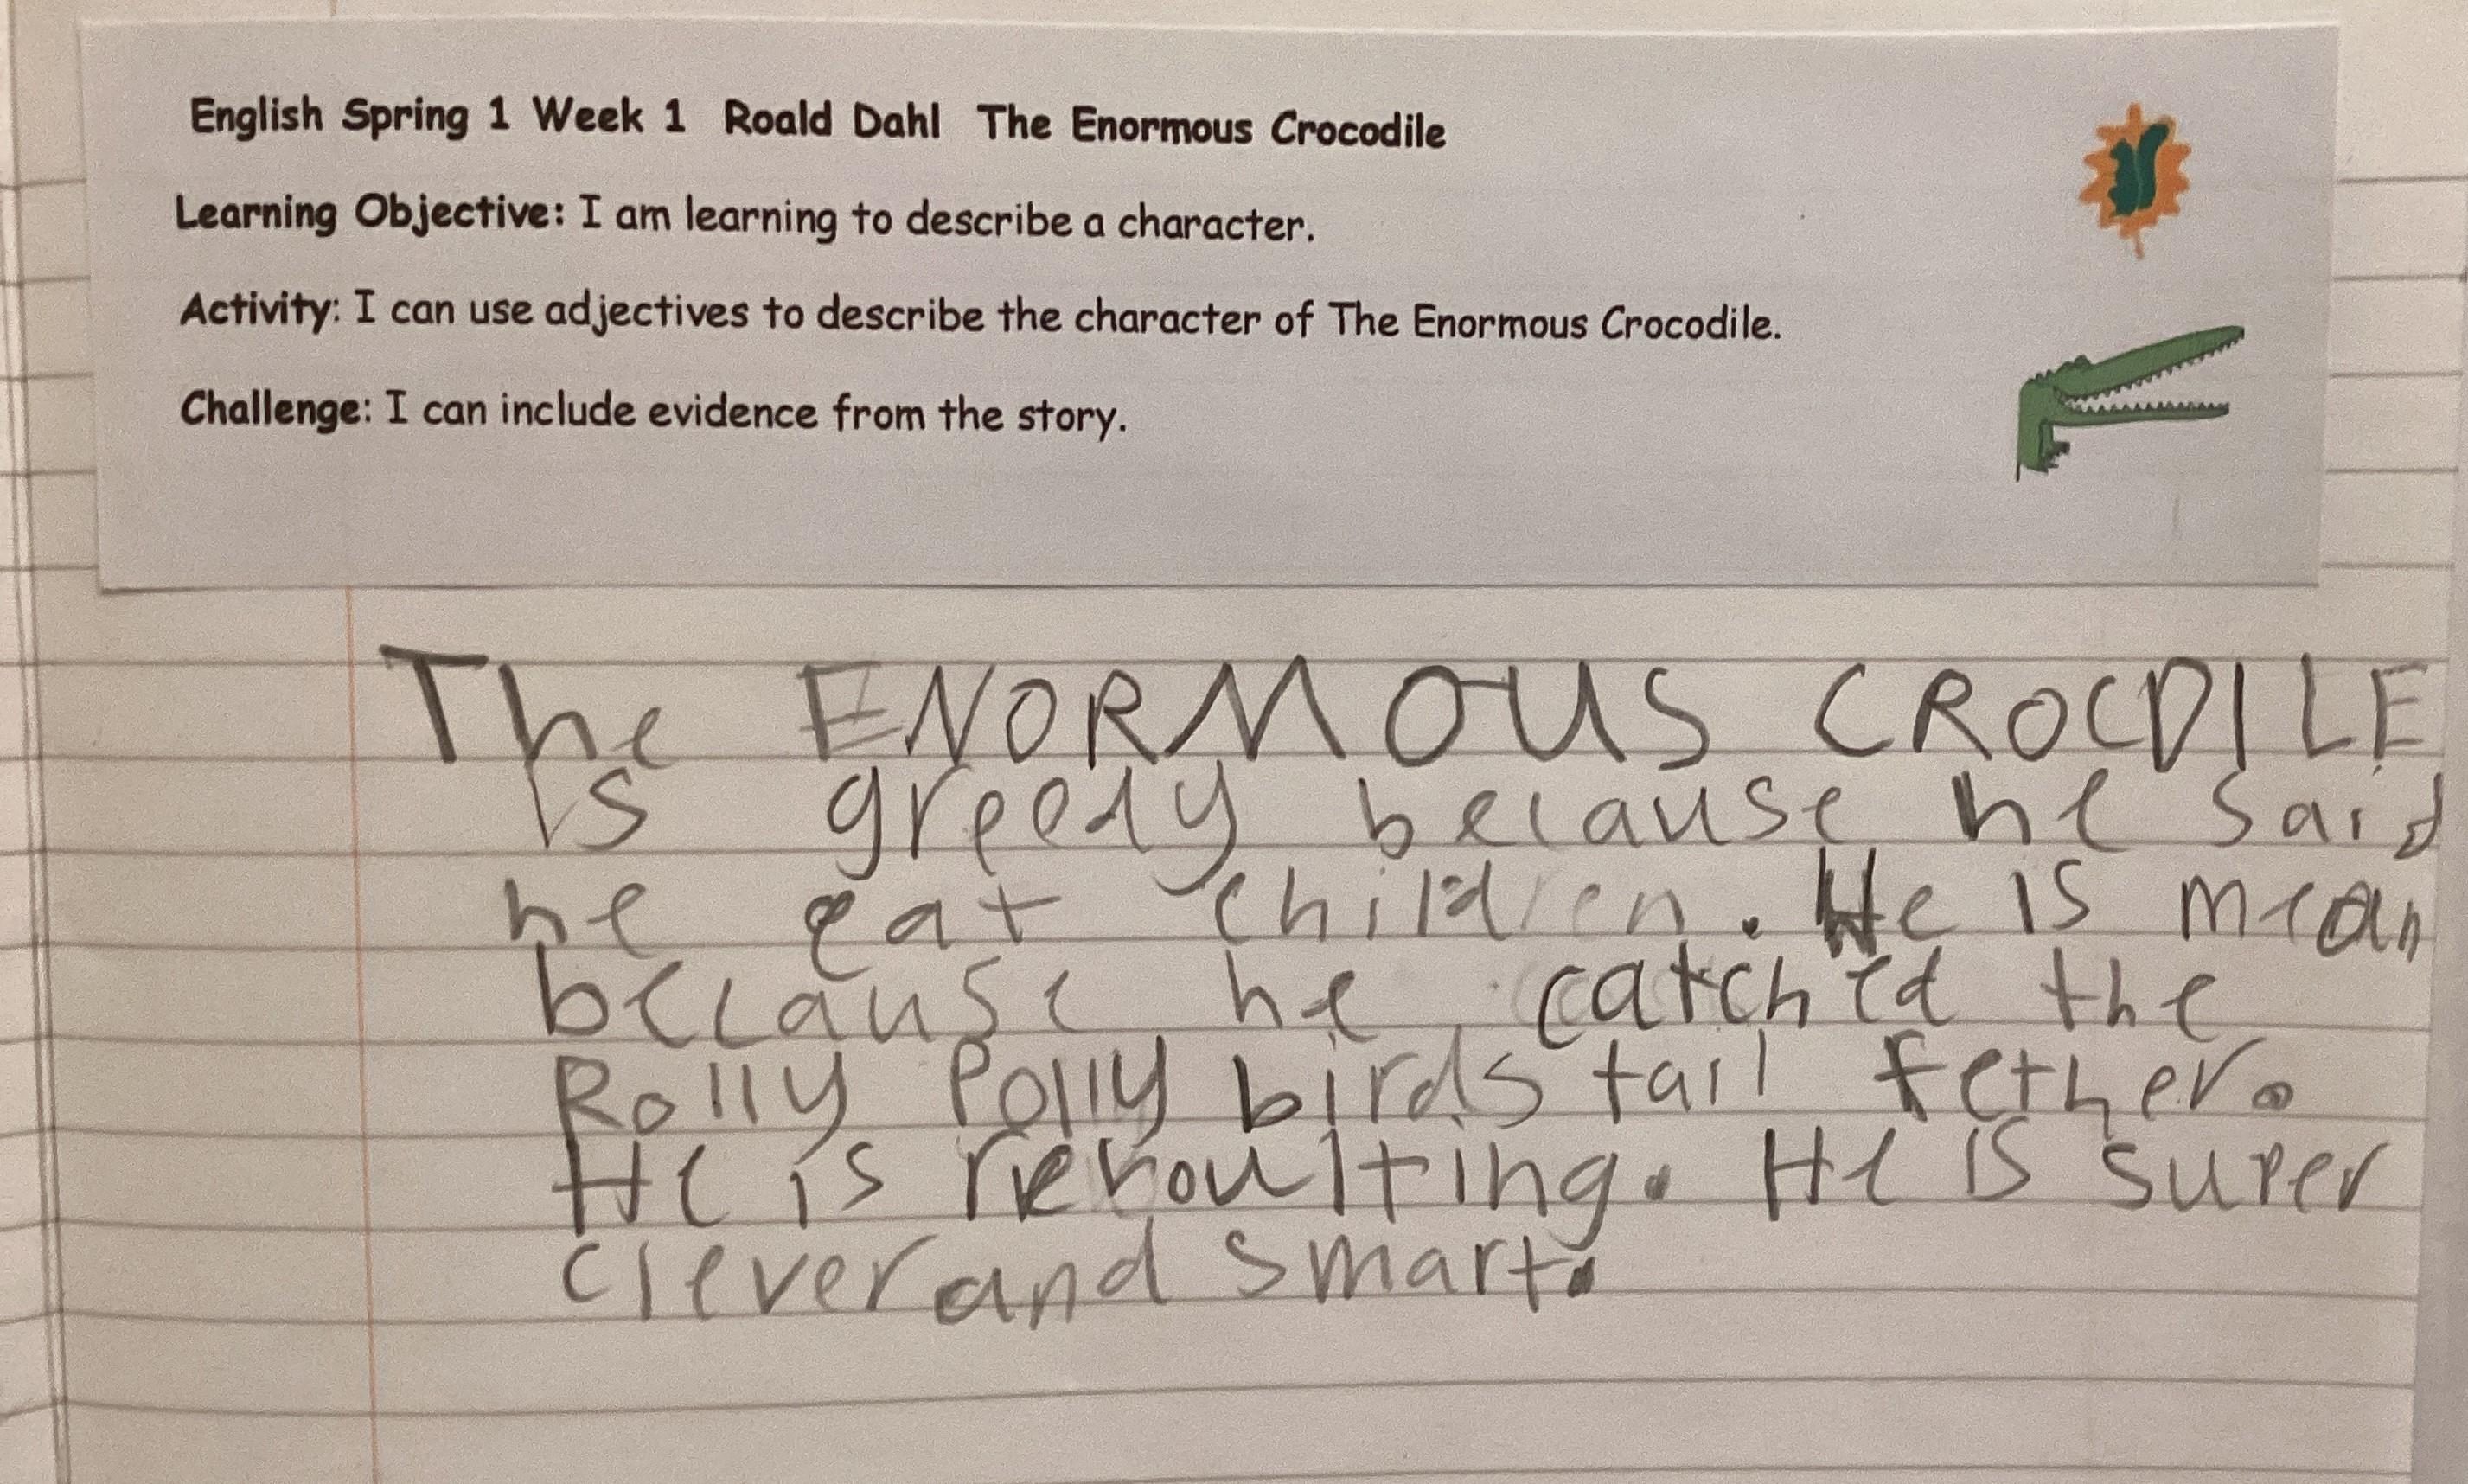 English Spring 1 Week 1 Roald Dahl The Enormous Crocodile
Learning Objective: I am learning to describe a character.
Activity: I can use adjectives to describe the character of The Enormous Crocodile.
Challenge: I can include evidence from the story.
The ENORMOUS CROCDILE
is greedy because he said
he eat children. He is mean
because he catched the
Rolly Polly birds tail fether.
He is revoulting. He is super
clever and smart.